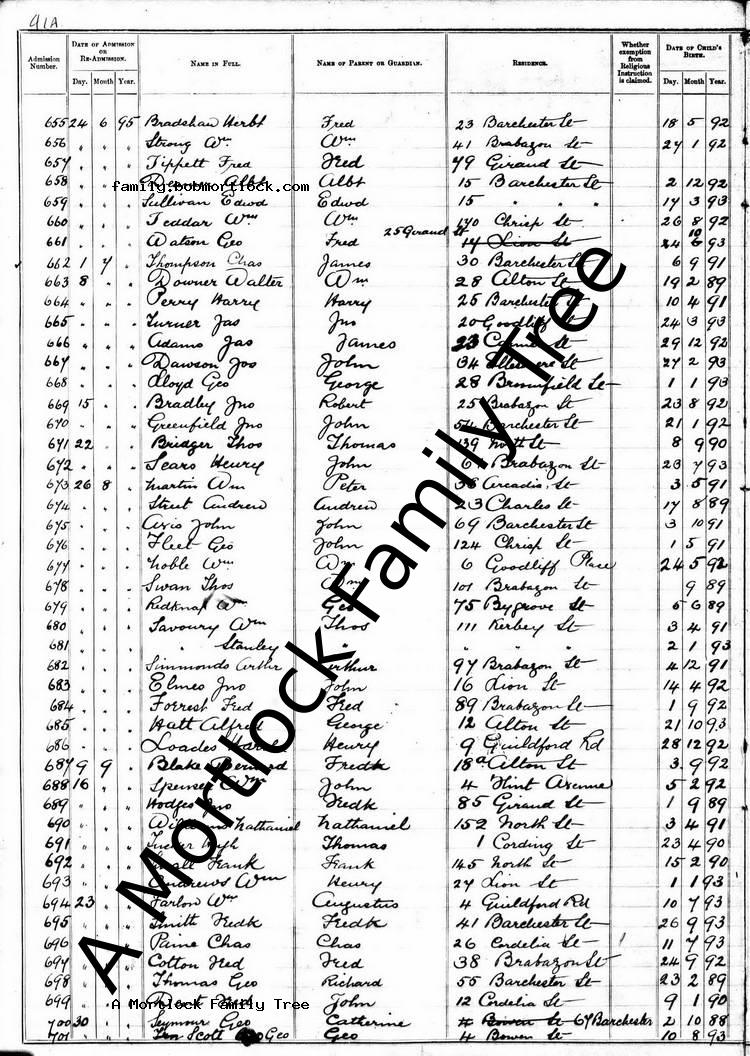 91A
Admission Number. DATE OF ADMISSION OR RE-ADMISSION. Day. Month Year. NAME IN FULL. NAME OF PARENT OR GUARDIAN. RESIDENCE. Whether exemption from Religious Instruction is claimed. DATE OF CHILD'S BIRTH. Day. Month Year.
655 24 6 95 Bradshaw Herbt Fred 23 Barchester St 18 5 92
656 " " " Strong Wm Wm 41 Brabazon St 27 1 92
657 " " " Tippett Fred Fred 79 Giraud St
658 " " " Albt Albt 15 Barchester St 2 12 92
family.bobmortlock.com
659 " " " Sullivan Edwd Edwd 15 " " 17 3 93
660 " " " Teddar Wm Wm 170 Chrisp St 26 8 92
661 " " " Watson Geo Fred 25 Giraud St 17 Lion St 24 10 93
662 1 7 " Thompson Chas James 30 Barchester St 6 9 91
663 8 " " Downer Walter Wm 28 Alton St 19 2 89
664 " " " Perry Harry Harry 25 Barchester St 10 4 91
665 " " " Turner Jas Jno 20 Goodliff St 24 3 93
666 " " " Adams Jas James 23 St 29 12 92
667 " " " Dawson Jos John 34 Ellesmere St 27 2 93
668 " " " Lloyd Geo George 28 Bromfield St 1 1 93
669 15 " " Bradley Jno Robert 25 Brabazon St 23 8 92
670 " " " Greenfield Jno John 54 Barchester St 21 1 92
671 22 " " Bridger Thos Thomas 139 North St 8 9 90
672 " " " Sears Henry John Brabazon St 23 7 93
673 26 8 " Martin Wm Peter Arcadia St 3 5 91
674 " " " Street Andrew Andrew 23 Charles St 17 8 89
675 " " " Axis John John 69 Barchester St 3 10 91
676 " " " Fleet Geo John 124 Chrisp St 1 5 91
677 " " " Noble Wm Wm 6 Goodliff Place 24 5 92
678 " " " Swan Thos Wm 101 Brabazon St 9 89
679 " " " Ridknap Wm Geo 75 Bygrove St 5 6 89
680 " " " Savoury Wm Thos 111 Kerbey St 3 4 91
681 " " " " Stanley " " " " 2 1 93
682 " " " Simmonds Arthr Arthur 97 Brabazon St 4 12 91
683 " " " Elmes Jno John 16 Lion St 14 4 92
684 " " " Forrest Fred Fred 89 Brabazon St 1 9 92
685 " " " Hatt Alfred George 12 Alton St 21 10 93
686 " " " Loades Harold Henry 9 Guildford Rd 28 12 92
687 9 9 " Blake Bernard Fredk 18a Alton St 3 9 92
688 16 " " Spenser Wm John 4 Flint Avenue 5 2 92
689 " " " Hodges Jno Fredk 85 Giraud St 1 9 89
690 " " " Williams Nathaniel Nathaniel 152 North St 3 4 91
691 " " " Tucker Hugh Thomas 1 Cording St 23 4 90
692 " " " Small Frank Frank 145 North St 15 2 90
693 " " " Andrews Wm Henry 27 Lion St 1 1 93
694 23 " " Farlow Wm Augustus 4 Guildford Rd 10 7 93
695 " " " Smith Fredk Fredk 41 Barchester St 26 9 93
696 " " " Paine Chas Chas 26 Cordelia St 11 7 93
697 " " " Cotton Fred Fred 38 Brabazon St 24 9 92
698 " " " Thomas Geo Richard 55 Barchester St 23 2 89
699 " " " John 12 Cordelia St 9 1 90
A Mortlock Family Tree
700 30 " " Seymour Geo Catherine Bowen St 67 Barchester 2 10 88
701 " " " Scott Geo Geo 4 Bowen St 10 8 93
A Mortlock Family Tree